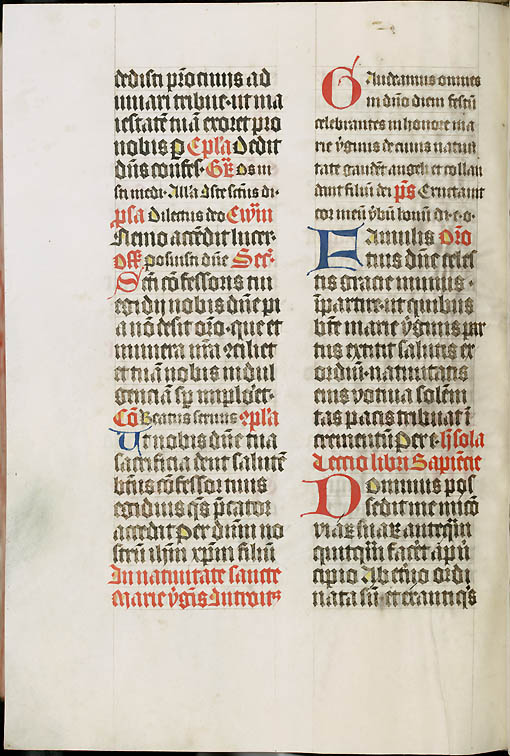 dedisti p̄ncipiis ad
iuuari tribue· ut ma
iestatē tuā exoret pro
nobis ꝑ Epl̄a Dedit
dn̄s confes· Gr̄ Os iu
sti medi· Allā Iste sc̄tus di·
p̄sa Dilectus deo Ew̄m
Nemo accēdit lucer·
Off̄ Posui sup̄ dn̄e Sec̄·
Sc̄ti cōfessoris tui
egidij nobis dn̄e pi
a nō desit or̄o· que et
munera nr̄a ꝯciliet
et tuā nobis indul
genciā sp̄ implo̓et·
Cō Beatus seruus 9pl̄a
Ut nobis dn̄e tua
sacrificia dent salutē
bt̄us cōfessor tuus
egidius qs̄ p̄cator
accedit Per dn̄m no
strū ih̄m xp̄m filiū
In natiuitate sancte
Marie v̓gīs Introitꝰ
Gaudeamus omnes
in dn̄o diem festū
celebrantes in honore ma
rie v̓ginis de cuius natiui
tate gaudēt angeli et collau
dant filiū dei p̄s Eructauit
cor meū v̓bū bonū di· e· o·
Famulis Or̄o
tuis dn̄e celes
tis gracie munus·
īpartire· ut quibus
bt̄e marie v̓ginis par
tus extitit salutis ex
ordiū· natiuitatis
eius votiua solēni
tas pacis tribuat ī
crementū Per e· h̄ sola
Lectio libri Sapiēcie
Dominus pos
sedit me in inicō
viaꝝ suaꝝ anteq̄m
quitq̄m facēt a p̄n
cipio Ab et̓no ordi
nata sū· et ex antiq̄s